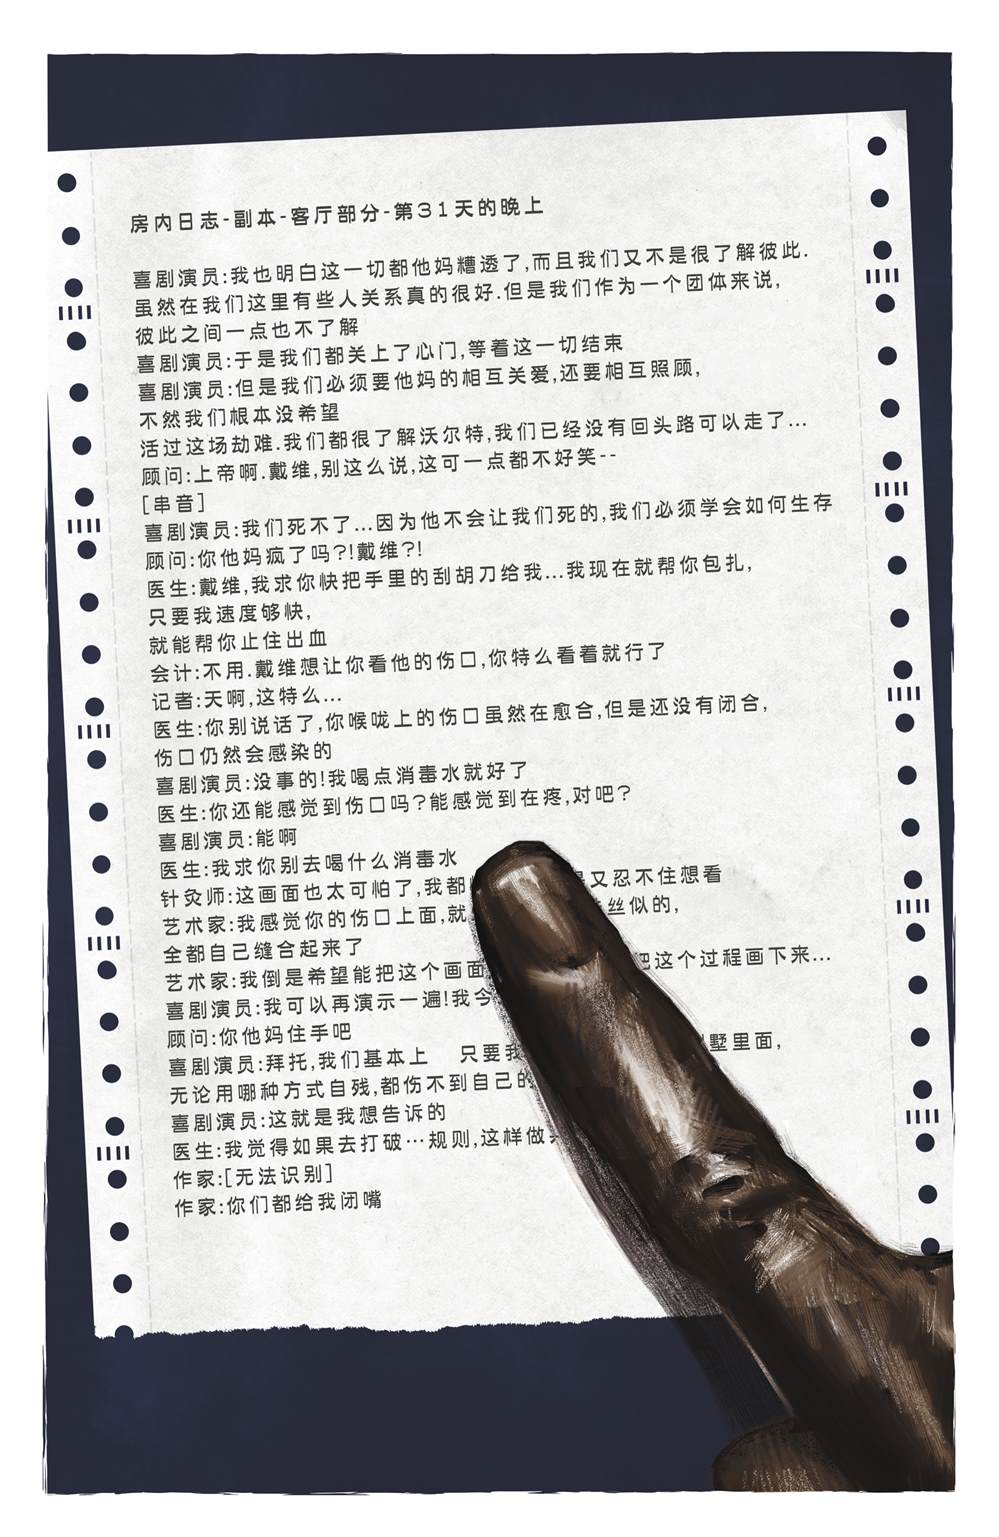 房内日志-副本-客厅部分-第31天的晚上
喜剧演员:我也明白这一切都他妈糟透了,而且我们又不是很了解彼此.
虽然在我们这里有些人关系真的很好.但是我们作为一个团体来说,
彼此之间一点也不了解
喜剧演员:于是我们都关上了心门,等着这一切结束
喜剧演员:但是我们必须要他妈的相互关爱,还要相互照顾,
不然我们根本没希望
活过这场劫难.我们都很了解沃尔特,我们已经没有回头路可以走了...
顾问:上帝啊.戴维,别这么说,这可一点都不好笑--
[串音]
喜剧演员:我们死不了...因为他不会让我们死的,我们必须学会如何生存
顾问:你他妈疯了吗?!戴维?!
医生:戴维,我求你快把手里的刮胡刀给我...我现在就帮你包扎,
只要我速度够快,
就能帮你止住出血
会计:不用.戴维想让你看他的伤口,你特么看着就行了
记者:天啊,这特么...
医生:你别说话了,你喉咙上的伤口虽然在愈合,但是还没有闭合,
伤口仍然会感染的
喜剧演员:没事的!我喝点消毒水就好了
医生:你还能感觉到伤口吗?能感觉到在疼,对吧?
喜剧演员:能啊
医生:我求你别去喝什么消毒水
针灸师:这画面也太可怕了,我都 又忍不住想看
艺术家:我感觉你的伤口上面,就 丝似的,
全都自己缝合起来了
艺术家:我倒是希望能把这个画面 把这个过程画下来...
喜剧演员:我可以再演示一遍!我今
顾问:你他妈住手吧
喜剧演员:拜托,我们基本上 只要我 墅里面,
无论用哪种方式自残,都伤不到自己的
喜剧演员:这就是我想告诉的
医生:我觉得如果去打破…规则,这样做
作家:[无法识别]
作家:你们都给我闭嘴